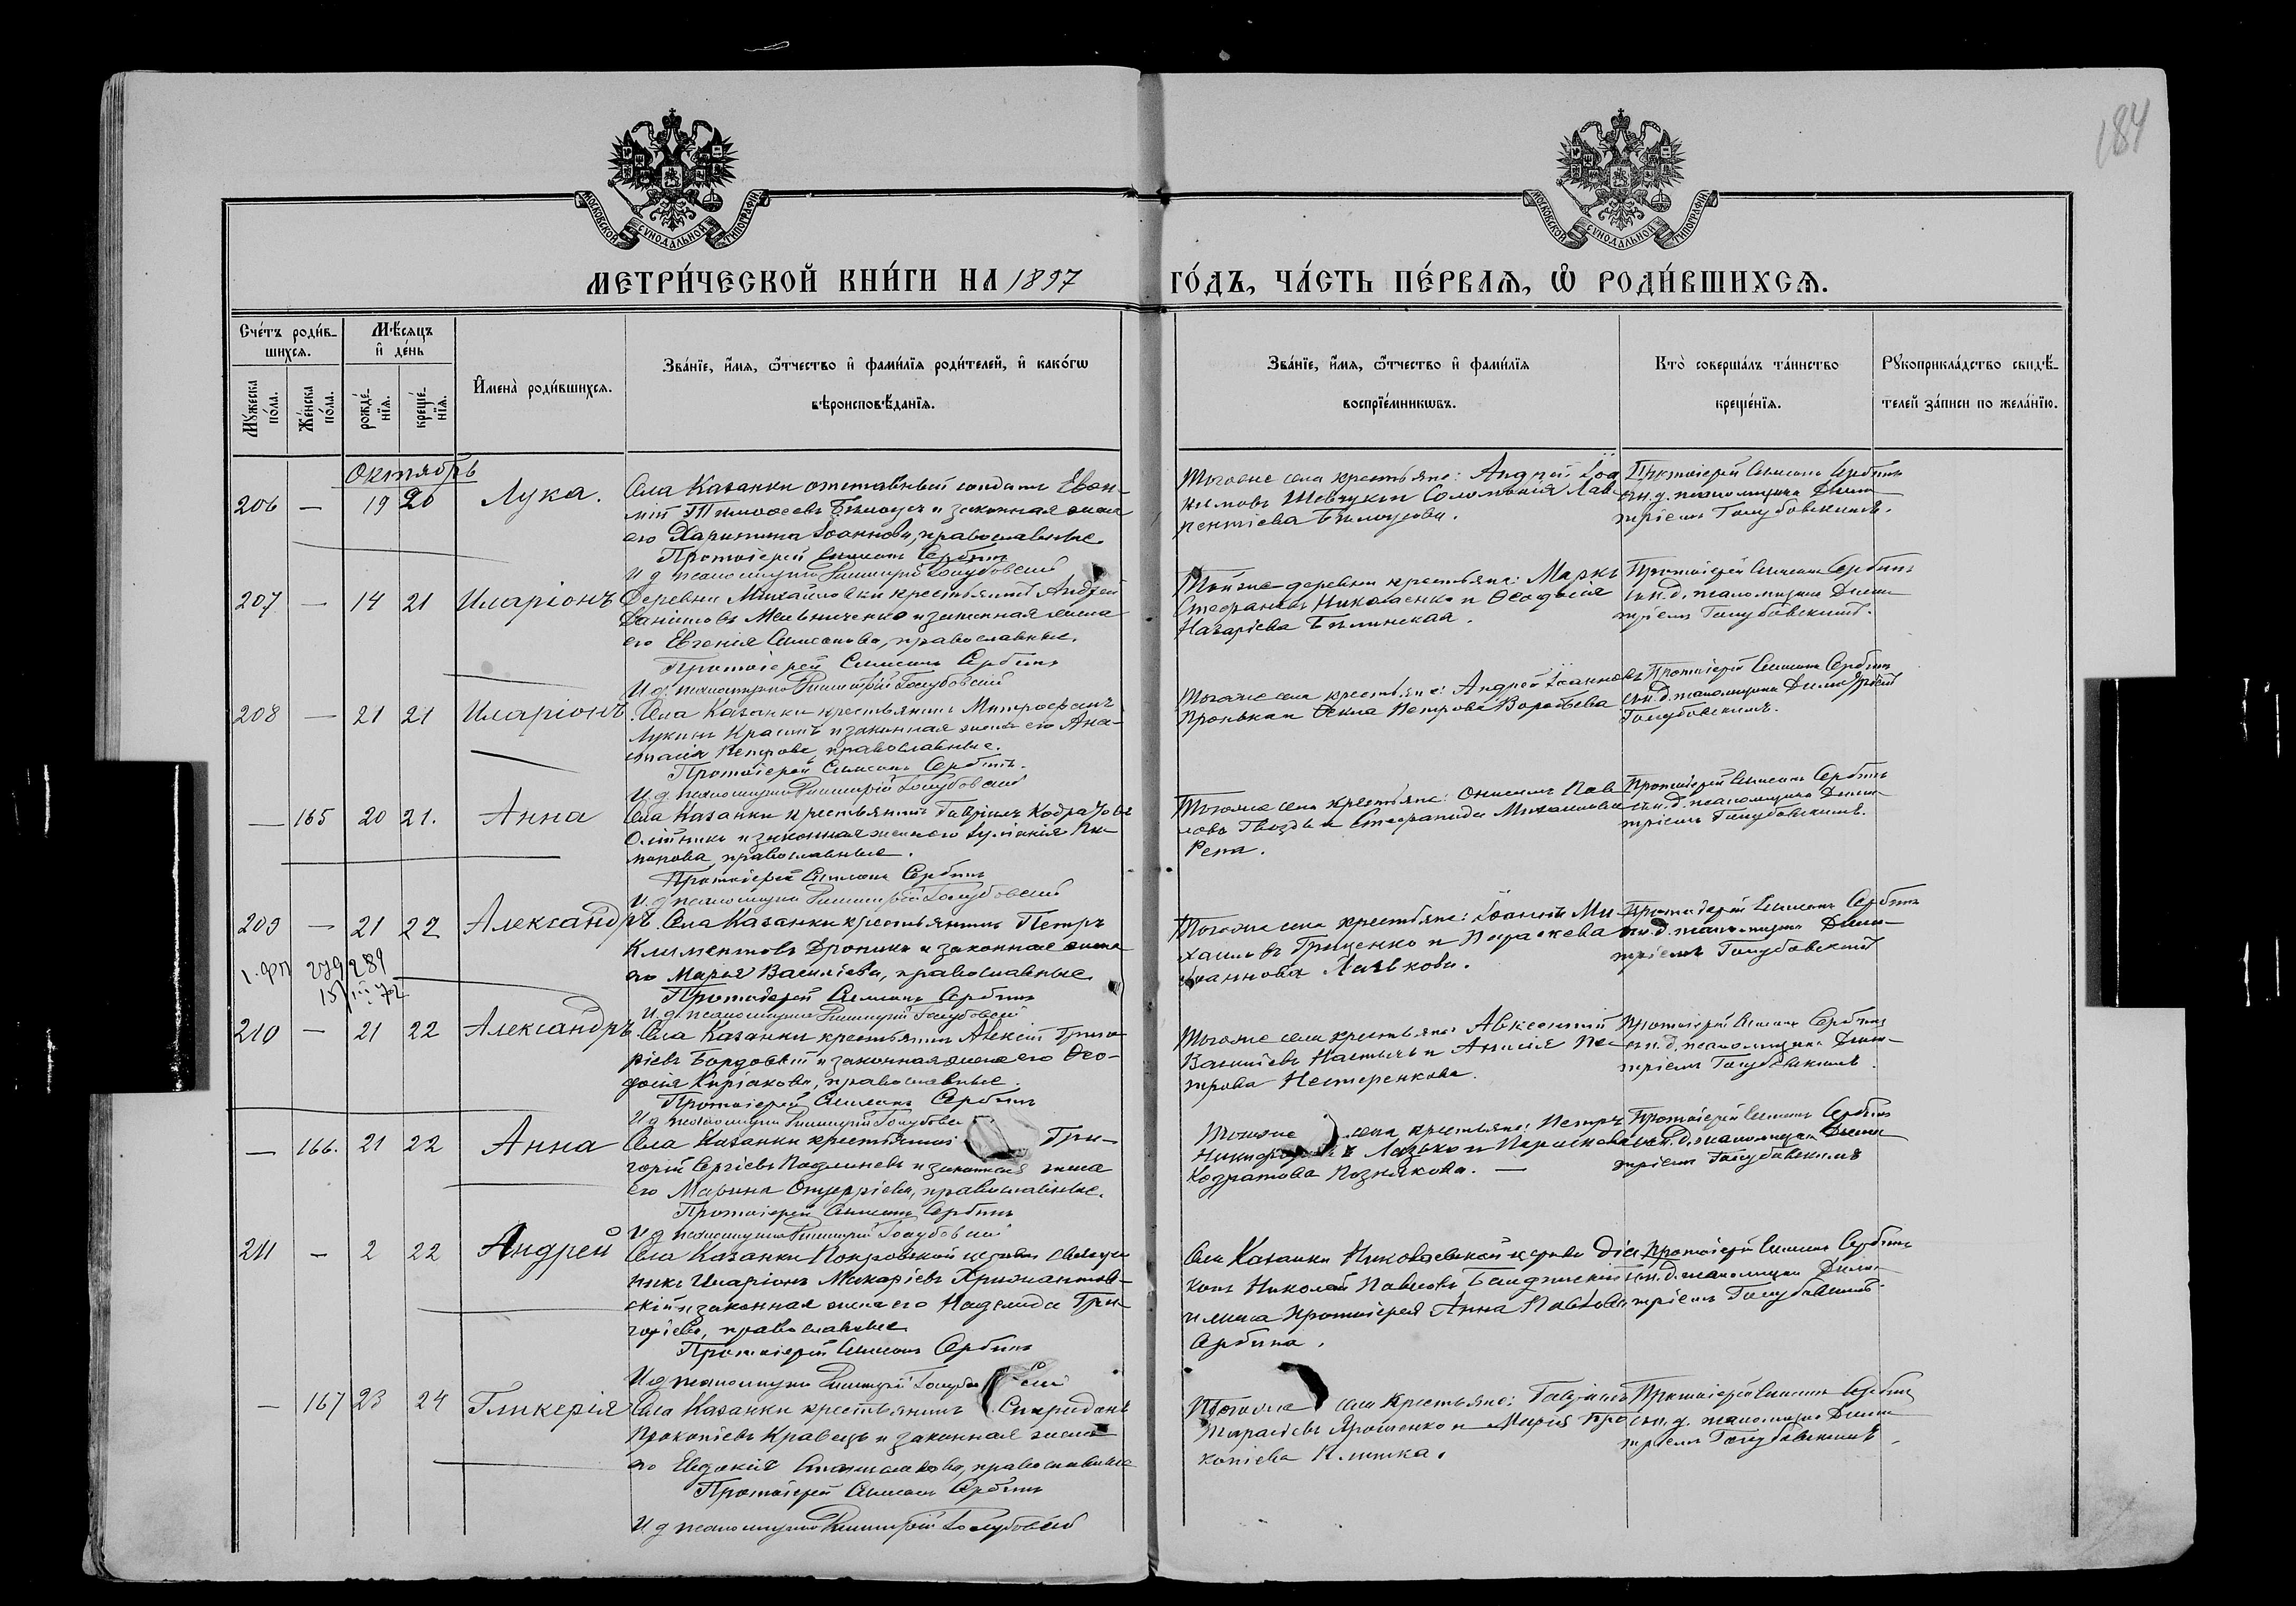 184
МОСКОВСКОЙ СУНОДАЛЬНОЙ ТИПОГРАФІИ
МОСКОВСКОЙ СУНОДАЛЬНОЙ ТИПОГРАФІИ
МЕТРИ́ЧЕСКОЙ КНИ́ГИ НА 1897
ГО́ДЪ, ЧА́СТЬ ПЕ́РВАѦ, Ѡ РОДИ́ВШИХСѦ.
Сче́тъ роди́в-
шихсѧ.
Мѣ́сяцъ
и҆ де́нь
Му́жеска
по́ла.
Же́нска
по́ла.
рожде́-
нїѧ.
креще́-
нїѧ.
И҆мена̀ роди́вшихсѧ.
Зва́нїе, и҆́мѧ, ѻ҆́тчество и҆ фами́лїѧ роди́телей, и҆ како́гѡ
вѣроисповѣ́данїѧ.
Зва́нїе, и҆́мѧ, ѻ҆́тчество и҆ фами́лїѧ
воспрїе́мникѡвъ.
Кто̀ соверша́лъ та́инство
креще́нїѧ.
Рꙋкоприкла́дство свидѣ́-
телей за́писи по жела́нїю.
Октябрь
206 — 19 20 Лука.
Села Казанки отставный солдатъ Евѳи-
мій Тимоѳеевъ Бѣлоусъ и законная жена
его Харитина Іоаннова, православные.
Протоіерей Симеонъ Сербинъ
И д псаломщика Димитрій Голубовскій
Тогоже села крестьяне: Андрей Іоа
кимовъ Шевчукъ и Соломонія Лав-
рентіева Бѣлоусова.
Протоіерей Симеонъ Сербинъ
съ и.д. псаломщика Дими-
тріемъ Голубовскимъ.
207 — 14 21 Иларіонъ
Деревни Михайловки крестьянинъ Андрей
Даніиловъ Мельниченко и законная жена
его Евгенія Симеонова, православные.
Протоіерей Симеонъ Сербинъ
И д. псаломщика Димитрій Голубовскій
Тойже деревни крестьяне: Маркъ
Стефановъ Николаенко и Ѳеодосія
Назаріева Бѣлинская.
Протоіерей Симеонъ Сербинъ
съ и.д. псаломщика Дими-
тріемъ Голубовскимъ.
208 — 21 21 Иларіонъ
Села Казанки крестьянинъ Митрофанъ
Лукинъ и законная жена его Ана-
стасія Петрова, православные.
Протоіерей Симеонъ Сербинъ.
И д. псаломщика Димитрій Голубовскій
Тогоже села крестьяне: Андрей Іоанновъ
Пронькин Ѳекла Петрова Воробьева
Протоіерей Симеонъ Сербинъ
съ и.д. псаломщика Димитріемъ
Голубовскимъ.
— 165 20 21. Анна
Села Казанки крестьянинъ Гавріилъ Кодратовъ
Олійникъ и законная жена его Іуліанія
православные.
Протоіерей Симеонъ Сербинъ
И. д псаломщика Димитрій Голубовскій
Тогоже села крестьяне: Онисимъ Пав
ловъ Гвоздь и Стефанида Михаилова
Репа.
Протоіерей Симеонъ Сербинъ
съ и.д. псаломщика Дими-
тріемъ Голубовскимъ.
209 — 21 22 Александръ
Села Казанки крестьянинъ Петръ
Климентовъ Дропикъ и законная жена
его Марья Василіева, православные
Протоіерей Симеонъ Сербинъ
И. д. псаломщика Димитрій Голубовскій
Тогоже села крестьяне: Іоаннъ Ми-
хаиловъ Гриценко и Параскева
Іоаннова
Протоіерей Симеонъ Сербинъ
съ и.д. псаломщика Дими-
тріемъ Голубовскимъ
279289
210 — 21 22 Александръ
Села Казанки крестьянинъ Алексій Григо-
ріевъ Бордовый и законная жена его Ѳео-
досія Киріакова, православные.
Протоіерей Симеонъ Сербинъ
И д псаломщика Димитрій Голубовс
Тогоже села крестьяне: Авксентій
Василіевъ и Анисія Пе-
трова Нестеренкова.
Протоіерей Симеонъ Сербинъ
съ и.д. псаломщика Дими-
тріемъ Голубовскимъ.
— 166. 21 22 Анна
Села Казанки крестьянинъ Гри-
горій Сергіевъ и законная жена
его Марина православные.
Протоіерей Симеонъ Сербинъ
И д псаломщика Димитрій Голубовскій
Тогоже села крестьяне: Петръ
Лазько и Параскева
Кодратова Познякова. —
Протоіерей Симеонъ Сербинъ
съ и.д. псаломщика Дими-
тріемъ Голубовскимъ
211 — 2 22 Андрей
Села Казанки Покровской церкви священ-
никъ Иларіонъ Макаріевъ Крыжановс-
кій и законная жена его Надежда Гри-
горіева, православные
Протоіерей Симеонъ Сербинъ
И д псаломщика Димитрій Голубовскій
Села Казанки Николаевской церкви діа-
конъ Николай Павловъ
и жена протоіерея Анна Павлова
Сербина.
Протоіерей Симеонъ Сербинъ
съ и.д. псаломщика Дими-
тріемъ Голубовскимъ.
— 167 23 24 Гликерія
Села Казанки крестьянинъ Спиридонъ
Прокопіевъ Кравецъ и законная жена
его Евдокія православные
Протоіерей Симеонъ Сербинъ
И д псаломщика Димитрій Голубовскій
Тогоже села крестьяне: Гавріилъ
Тарасіевъ Ярошенко и Марія Про-
копіева
Протоіерей Симеонъ Сербинъ
съ и.д. псаломщика Дими-
тріемъ Голубовскимъ.